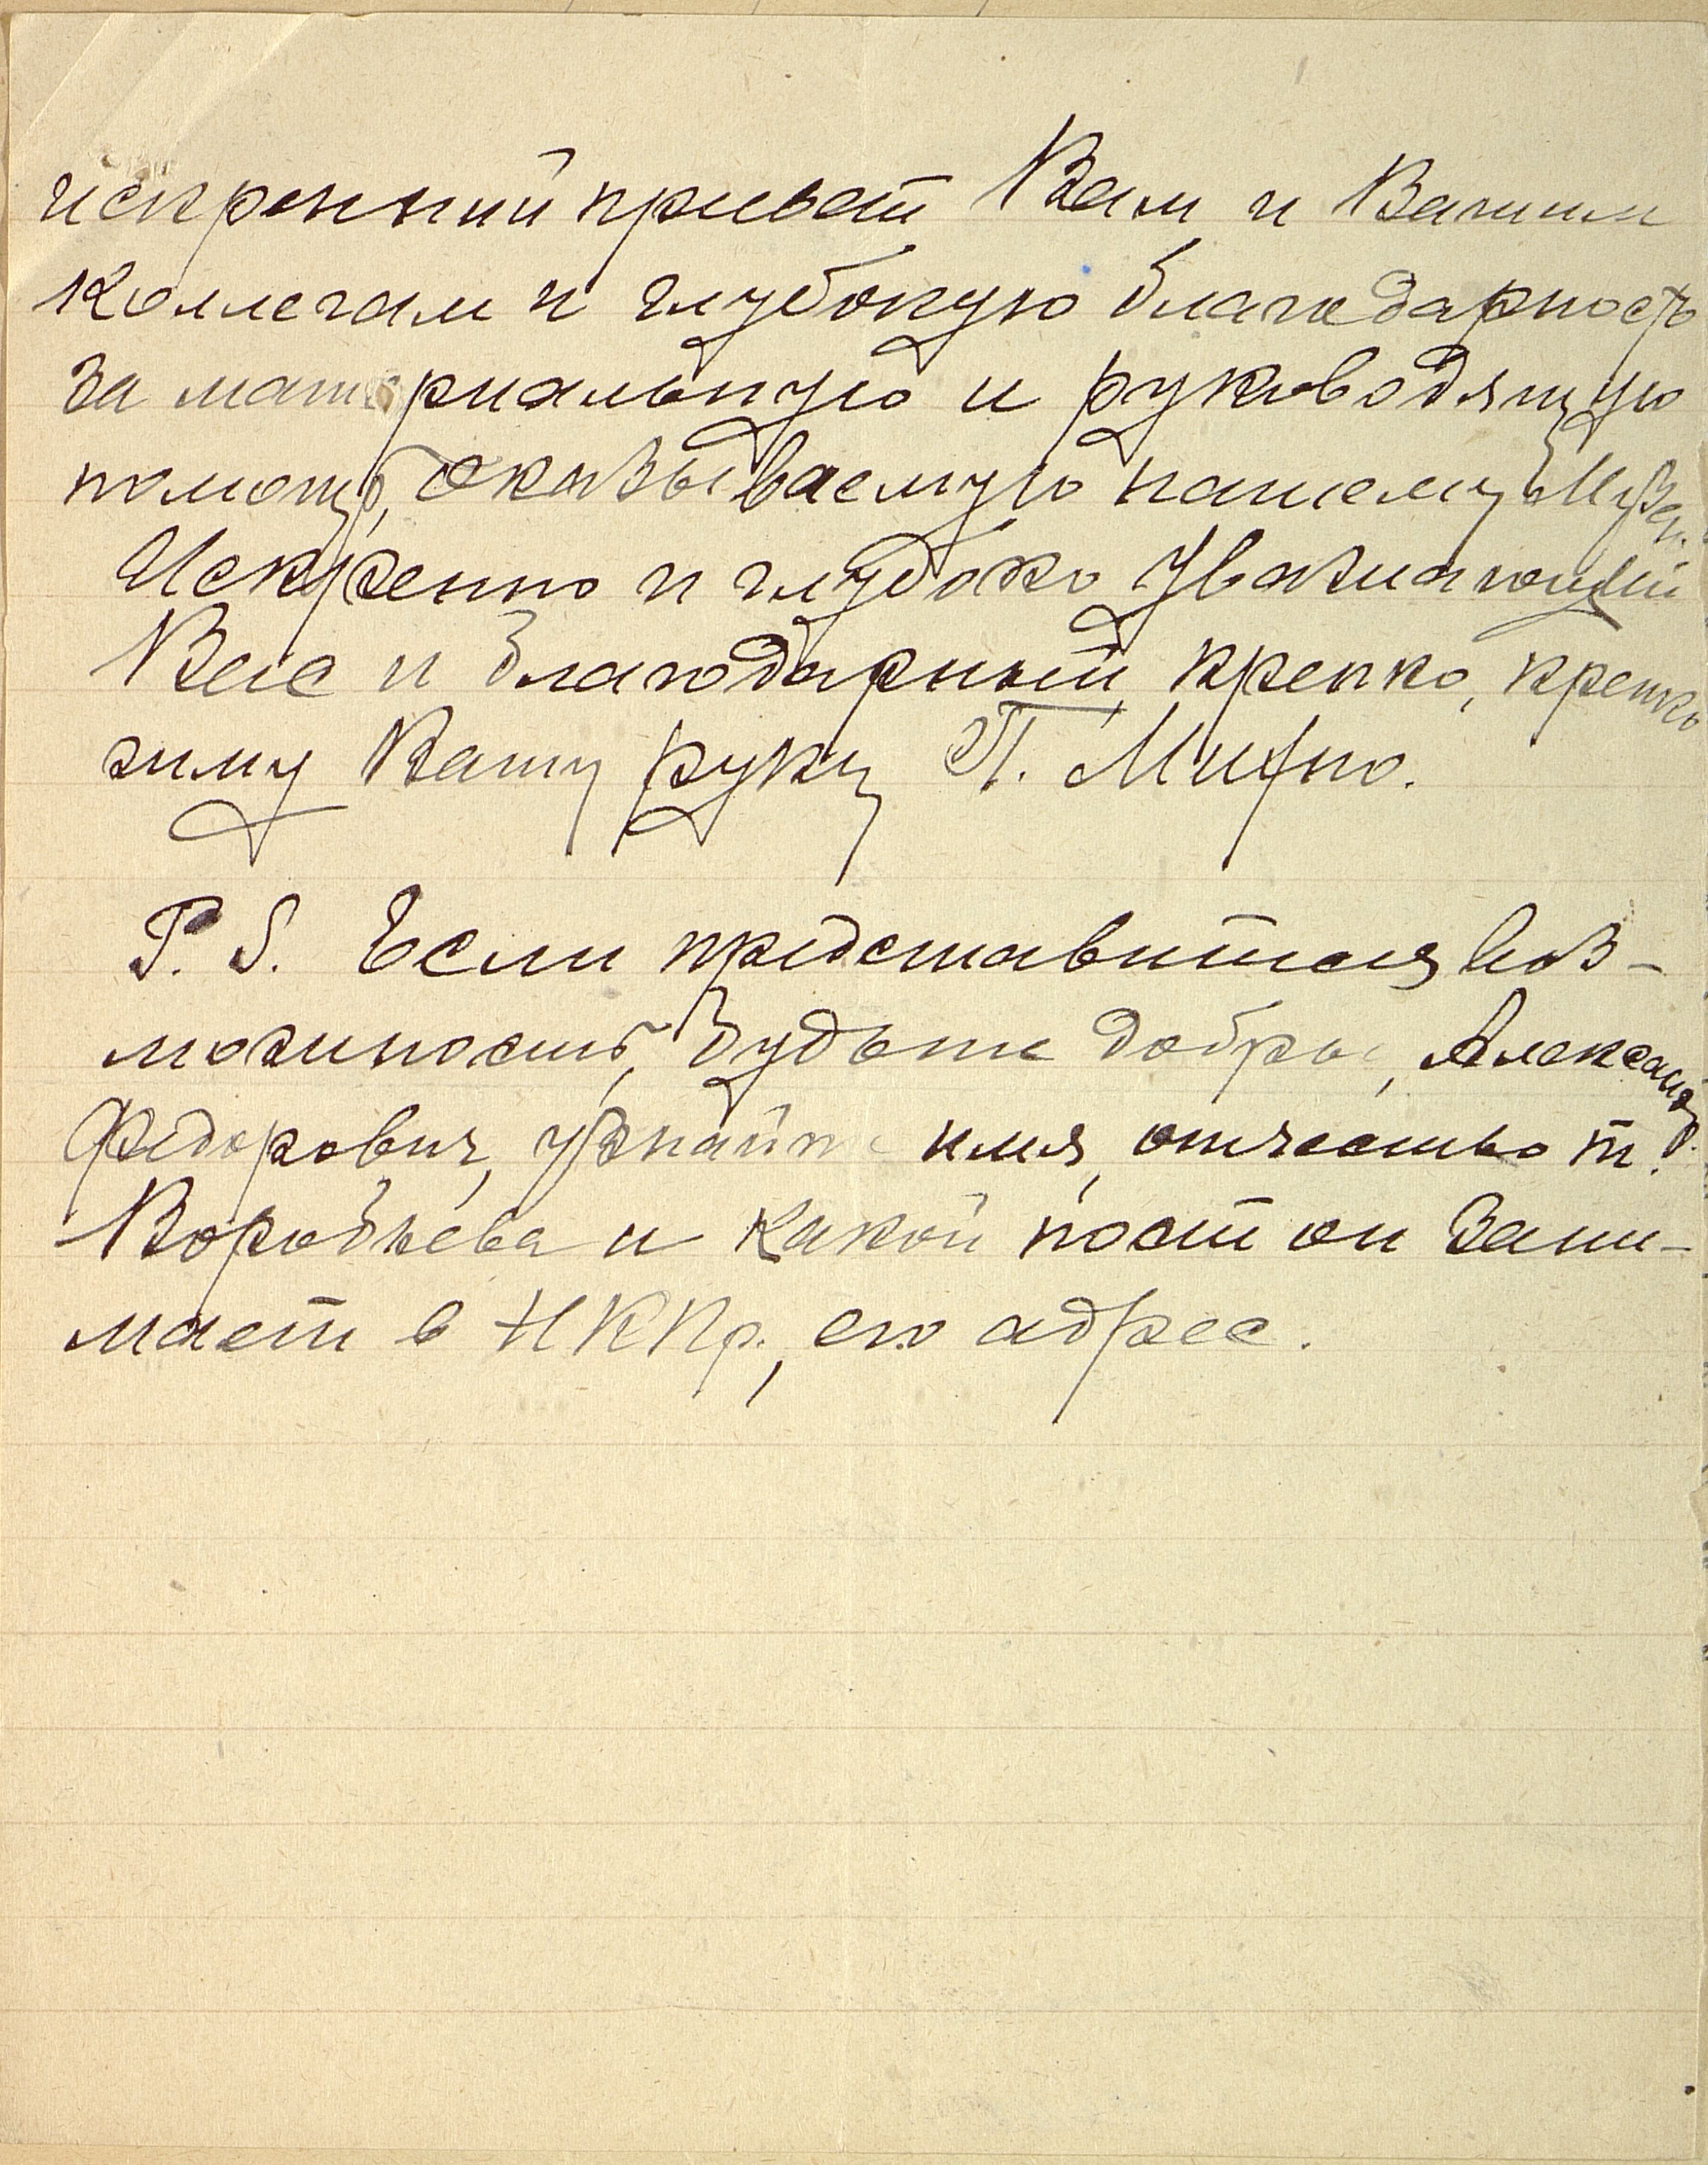 искренний привет Вам и Вашим
коллегам и глубокую благодарность
за материальную и руководящую
помощь, оказываемую нашему Музею.
Искренно и глубоко уважающий
Вас и благодарный, крепко, крепко
жму Вашу руку П.
P. S. Если представится воз-
можность, будьте добры, Александр
Федорович, узнайте имя, отчество т.
Воробьева и какой пост он зани-
мает в НКПр., его адрес.